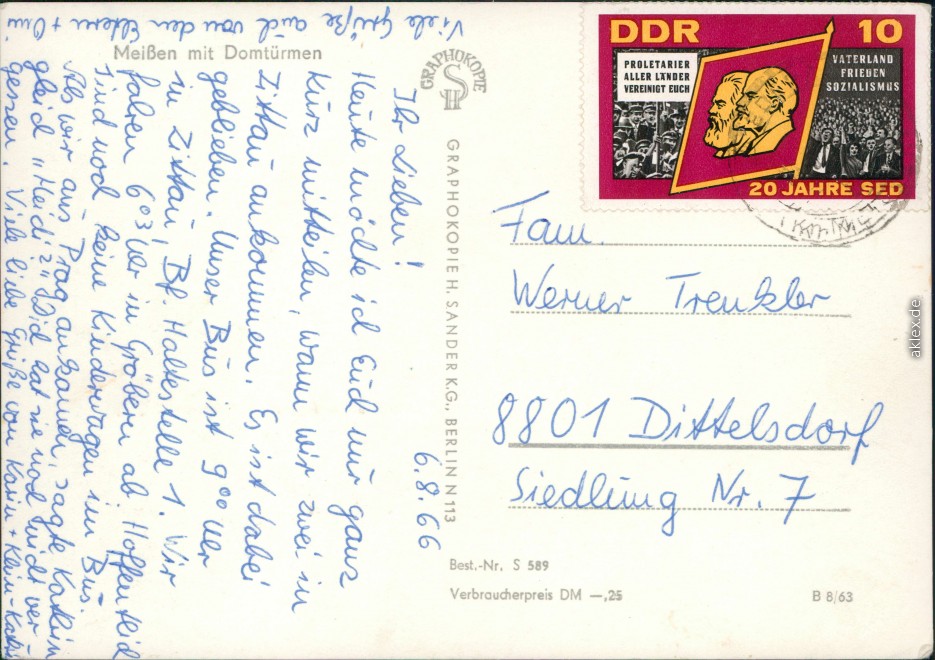 Meißen mit Domtürmen
GRAPHOKOPIE
H
S
GRAPHOKOPIE H. SANDER K.G., BERLIN N 113
6.8.66
Ihr Lieben!
Heute möchte ich Euch nur ganz
kurz mitteilen, wann wir zwei in
Zittau ankommen. Es ist dabei
geblieben. Unser Bus ist 9⁰⁰ Uhr
in Zittau, Bf. Haltestelle 1. Wir
fahren 6⁰³ Uhr in Gröbern ab. Hoffentlich
sind noch keine Kinderwagen im Bus.
Als wir aus Prag ankamen, sagte Katrin
gleich "Heidi". Dich hat sie noch nicht ver-
gessen. Viele liebe Grüße von Karin + Klein-Katrin
Viele Grüße auch von den Eltern + Omi
DDR 10
PROLETARIER
ALLER LÄNDER
VEREINIGT EUCH
VATERLAND
FRIEDEN
SOZIALISMUS
20 JAHRE SED
Fam.
Werner Trenkler
8801 Dittelsdorf
Siedlung Nr. 7
Best.-Nr. S 589
Verbraucherpreis DM —,25
B 8/63
aklex.de